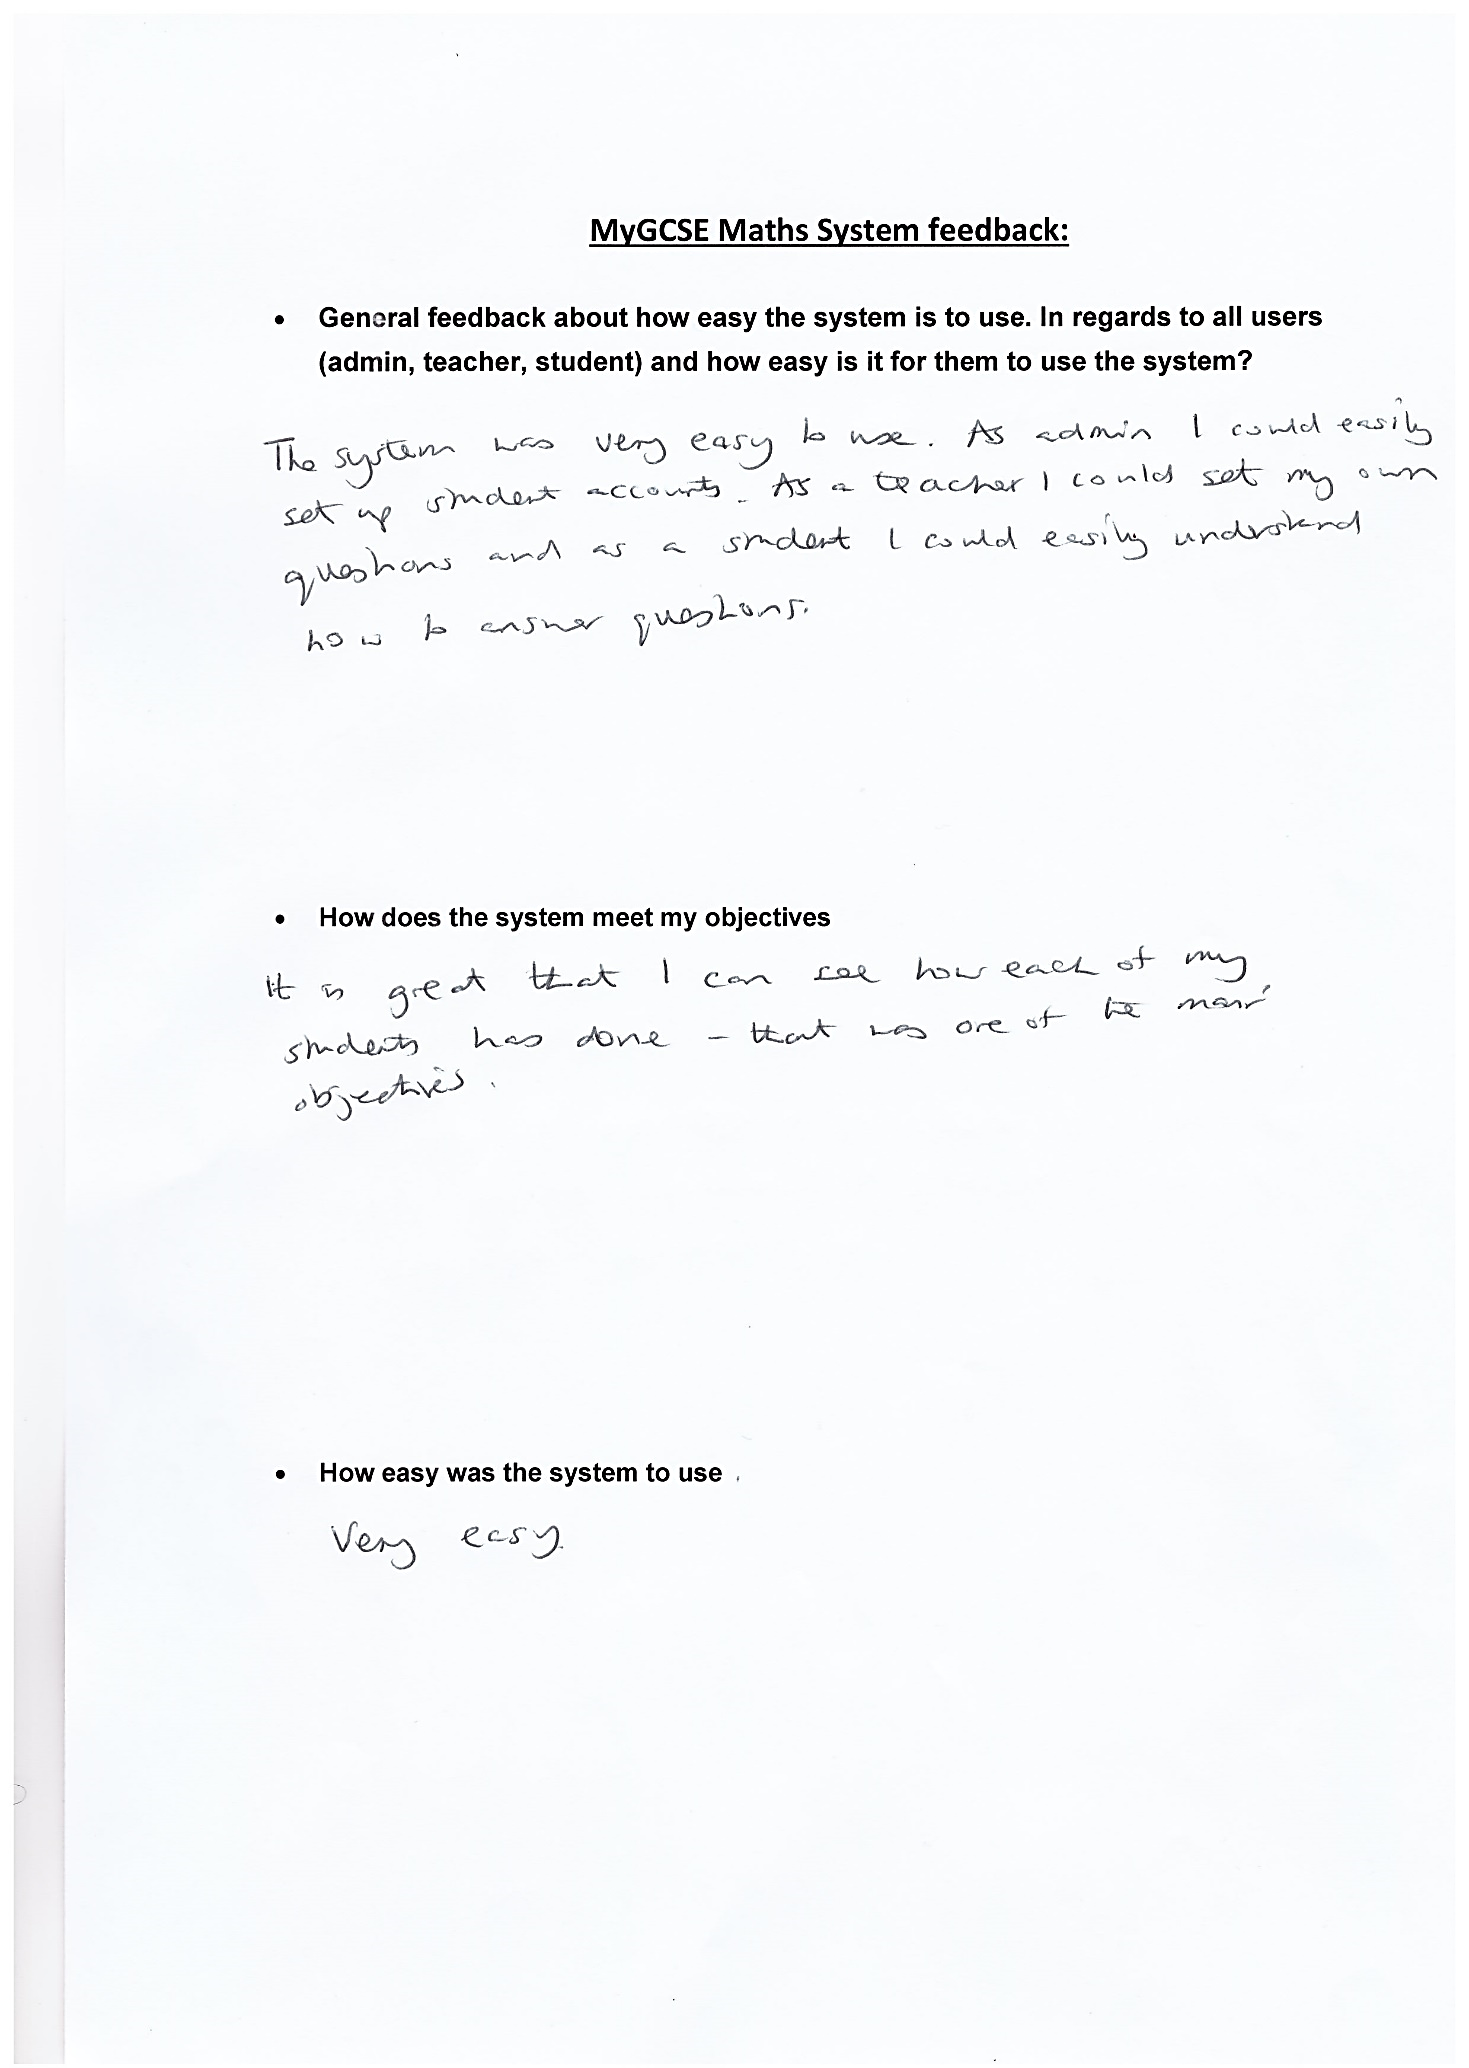 MyGCSE Maths System feedback:
• General feedback about how easy the system is to use. In regards to all users
(admin, teacher, student) and how easy is it for them to use the system?
The system was very easy to use. As admin I could easily
set up student accounts. As a teacher I could set my own
questions and as a student I could easily understand
how to answer questions.
• How does the system meet my objectives
It is great that I can see how each of my
students has done – that was one of the main
objectives.
• How easy was the system to use
Very easy.